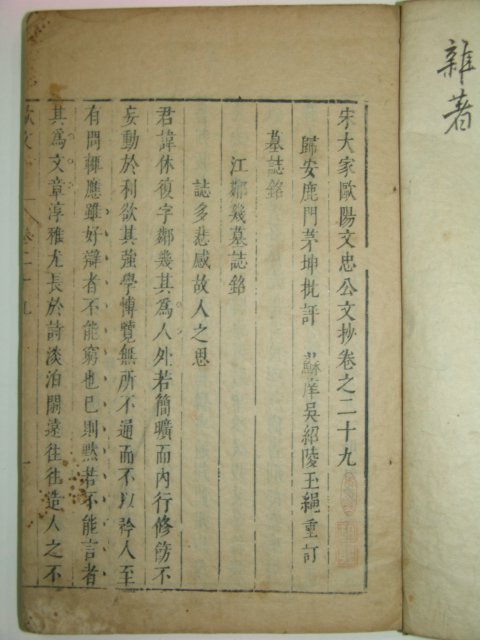 雜著
宋大家歐陽文忠公文抄卷之二十九
歸安鹿門茅坤批評 蘇庠吳紹陵玉繩重訂
墓誌銘
江鄰幾墓誌銘
誌多悲感故人之思
君諱休復字鄰幾其為人外若簡曠而內行修飭不
妄動於利欲其強學博覽無所不通而不以矜人至
有問輒應雖好辯者不能窮也已則默若不能言者
其為文章淳雅尤長於詩淡泊閒遠往往造人之不
歐文 卷二十九 一